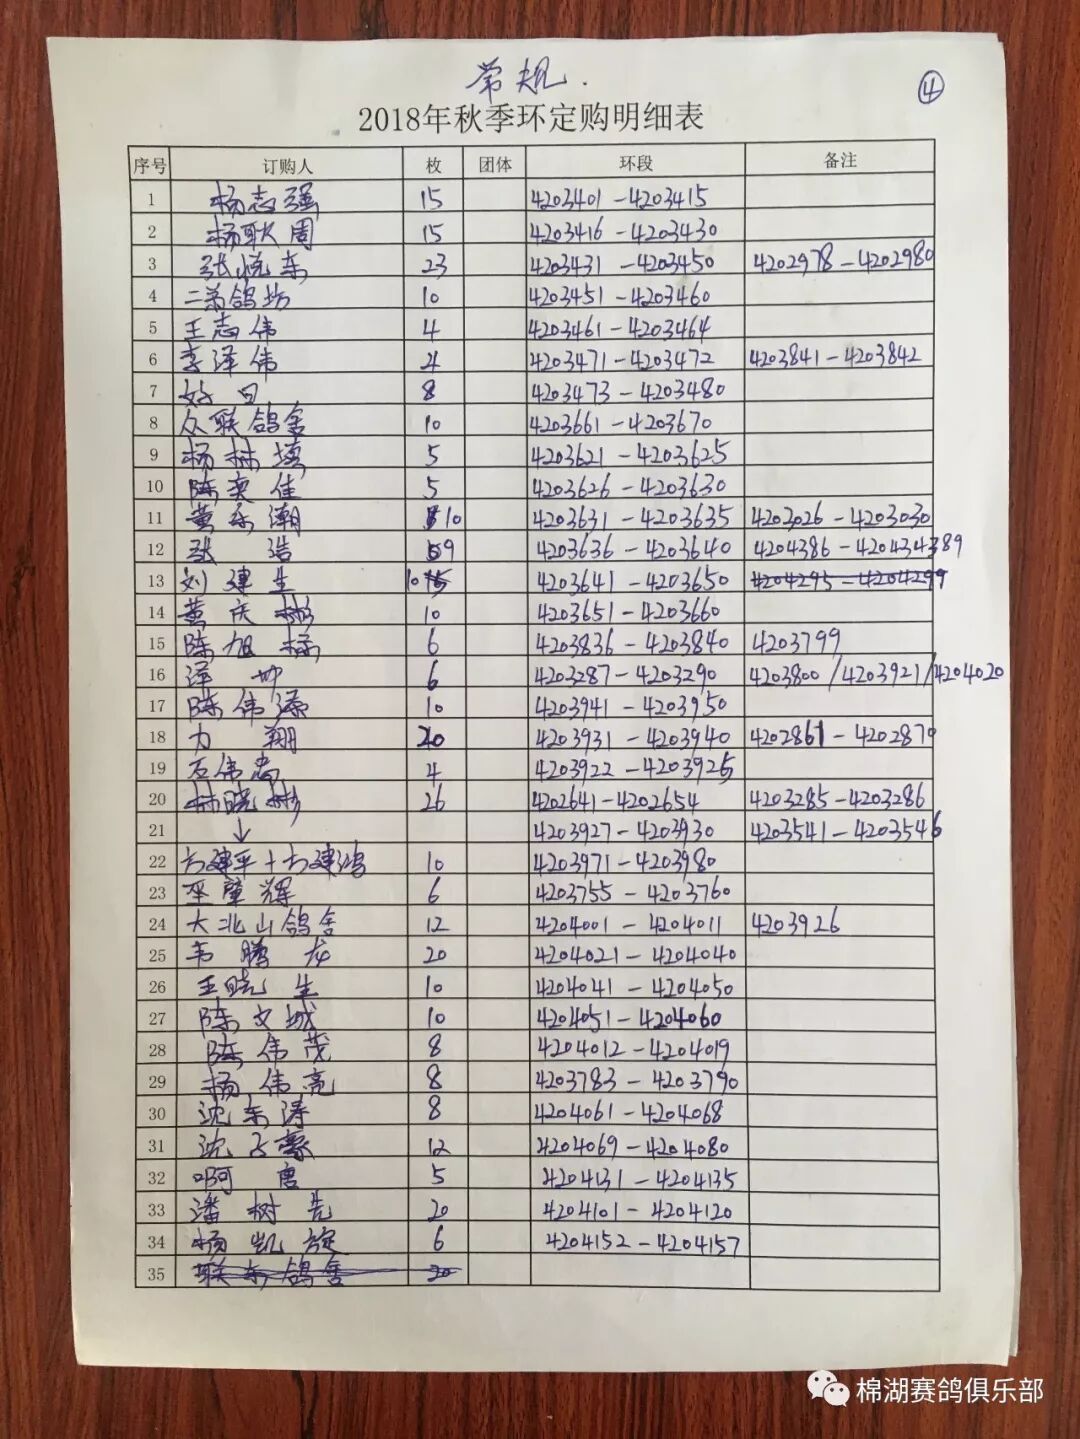 常规.
④
2018年秋季环定购明细表
序号 订购人 枚 团体 环段 备注
1 杨志强 15 4203401-4203415
2 杨耿周 15 4203416-4203430
3 张悦东 23 4203431-4203450 4202978-4202980
4 二弟鸽坊 10 4203451-4203460
5 王志伟 4 4203461-4203464
6 李泽伟 4 4203471-4203472 4203841-4203842
7 好日 8 4203473-4203480
8 众联鸽舍 10 4203661-4203670
9 杨林填 5 4203621-4203625
10 陈奕佳 5 4203626-4203630
11 黄东潮 10 4203631-4203635 4203026-4203030
12 张浩 9 4203636-4203640 4204386-420434389
13 刘建生 10 4203641-4203650 4204295-4204299
14 黄庆彬 10 4203651-4203660
15 陈旭 6 4203836-4203840 4203799
16 泽坤 6 4203287-4203290 4203800/4203921/4204020
17 陈伟 10 4203941-4203950
18 力翔 20 4203931-4203940 4202861-4202870
19 石伟 4 4203922-4203925
20 林晓彬 26 4202641-4202654 4203285-4203286
21 ↓ 4203927-4203930 4203541-4203546
22 方建平+方建鸿 10 4203971-4203980
23 巫肇辉 6 4203755-4203760
24 大北山鸽舍 12 4204001-4204011 4203926
25 韦腾龙 20 4204021-4204040
26 王晓生 10 4204041-4204050
27 陈文城 10 4204051-4204060
28 陈伟茂 8 4204012-4204019
29 杨伟亮 8 4203783-4203790
30 沈东涛 8 4204061-4204068
31 沈子豪 12 4204069-4204080
32 啊唐 5 4204131-4204135
33 潘树先 20 4204101-4204120
34 杨凯旋 6 4204152-4204157
35 联东鸽舍 20
棉湖赛鸽俱乐部